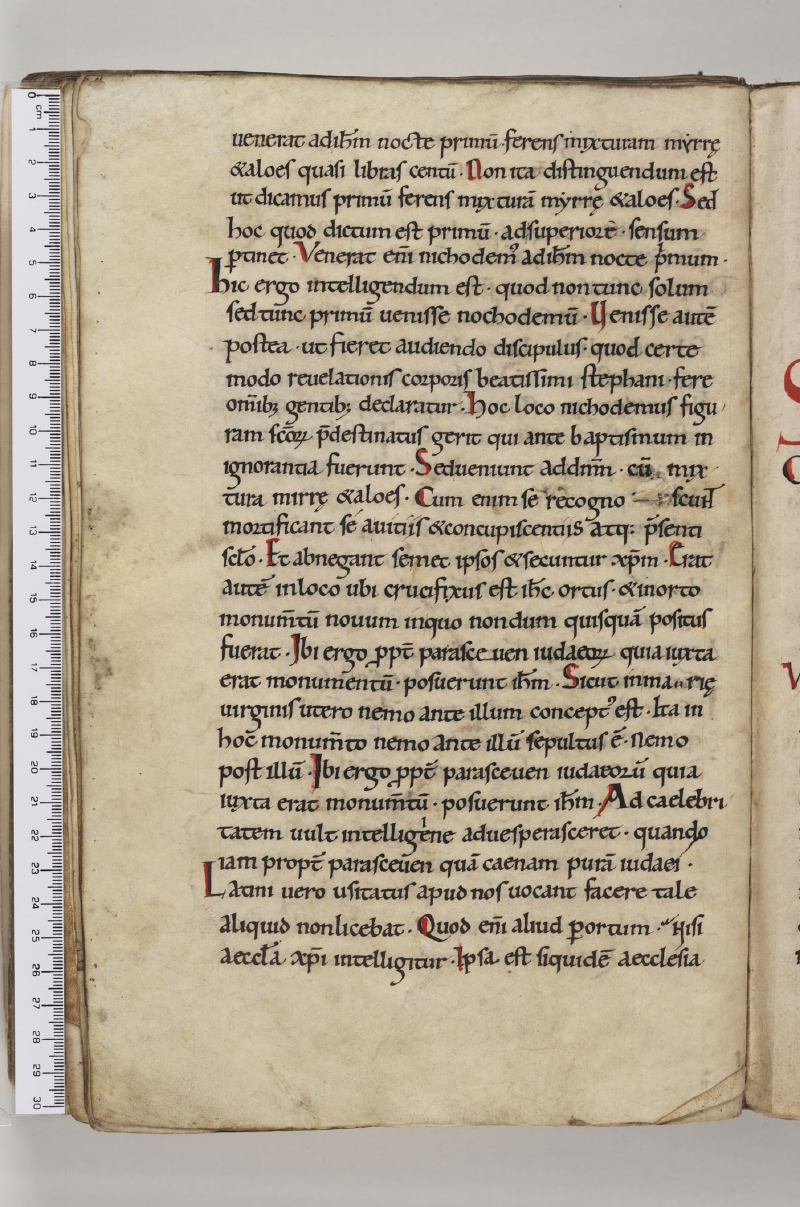 uenerat ad ih̅m nocte primū· ferens mixturam myrrę
& aloes quasi libras centū· Non ita distinguendum est
ut dicamus primū ferens mixturā myrrę & aloes· Sed
hoc quod dictum est primū· ad superiorē· sensum
ꝑtinet· Venerat eni̅ nichodemꝰ ad ih̅m nocte p̅mum·
hic ergo intelligendum est· quod non tunc solum
sed tunc primū uenisse nochodemū· Uenisse autē
postea· ut fieret audiendo discipulus· quod certe
modo reuelationis corporis beatissimi stephani· fere
om̅ib; gentib; declaratur· hoc loco nichodemus figu
ram sc̅oꝝ p̅destinatus gerit qui ante baptismum in
ignorantia fuerunt· Sed ueniunt ad dn̅m· cū mix
tura mirrę & aloes· Cum enim se recogno
mortificant se a uitiis & concupiscentiis atq: p̅senti
sc̅lo· Et abnegant semet ipsos & secuntur xp̅m· Erat
autē in loco ubi crucifixus est ih̅c ortus· & in orto
monum̅tū nouum in quo nondum quisquā positus
fuerat· Ibi ergo ꝓpt̅ parasceuen iudaeoꝝ quia iuxta
erat monumentū· posuerunt ih̅m· Sicut in marię
uirginis utero nemo ante illum conceptꝰ est· Ita in
hoc monum̅to nemo ante illū sepultus ē· Nemo
post illū· Ibi ergo ꝓpt̅ parasceuen iudaeorū quia
iuxta erat monum̅tū· posuerunt ih̅m· Ad caelebri
tatem uult intelligine aduesperasceret· quando
iam propt̅ parasceuen quā caenam purā iudaei·
Latini uero usitatus apud nos uocant facere tale
aliquid non licebat· Quod eni̅ aliud ꝑ ortum· Nisi
aeccl̅a xp̅i intelligitur· Ipsa est siquidē aecclesia